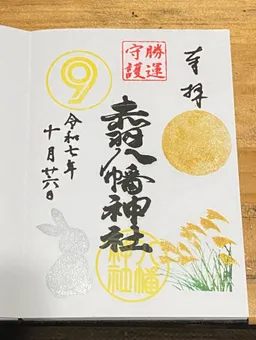 奉拝
勝運
守護
赤羽八幡神社
八幡
神社
9
令和七年
十月廿六日